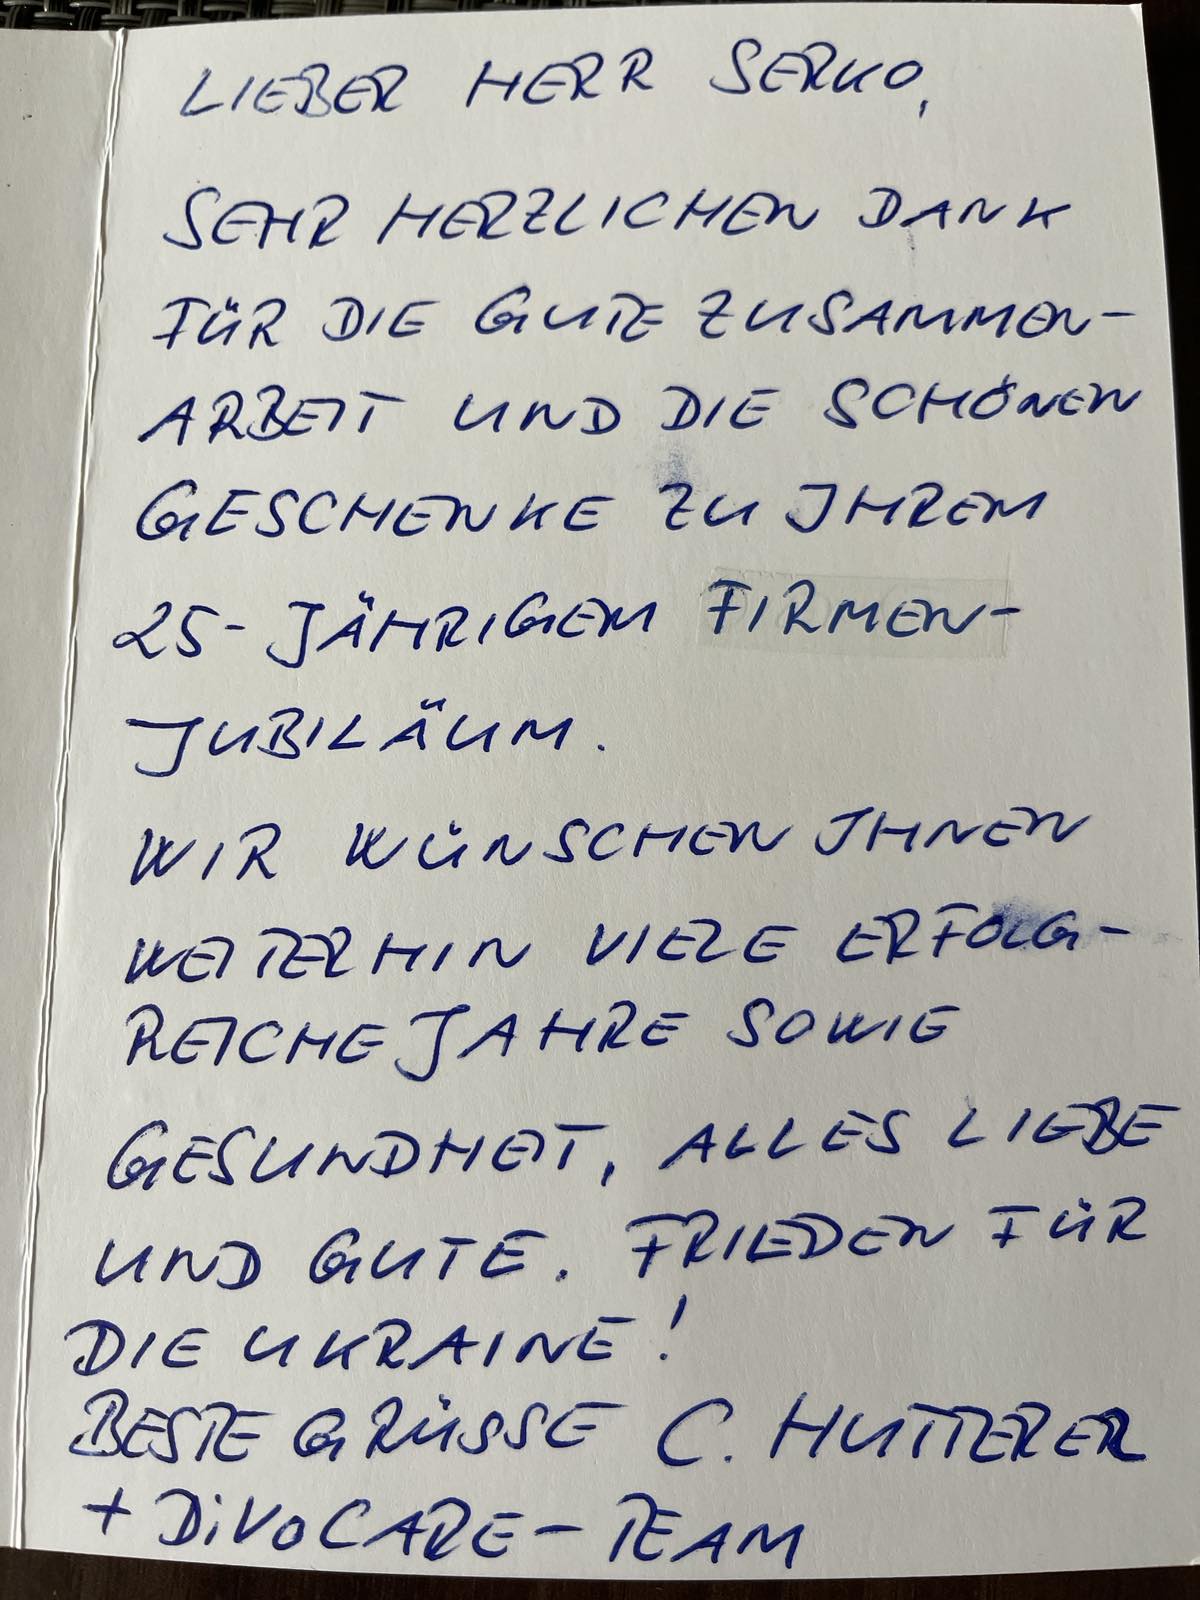 LIEBER HERR SERKO,
SEHR HERZLICHEN DANK
FÜR DIE GUTE ZUSAMMEN-
ARBEIT UND DIE SCHÖNEN
GESCHENKE ZU IHREM
25-JÄHRIGEM FIRMEN-
JUBILÄUM.
WIR WÜNSCHEN IHNEN
WEITERHIN VIELE ERFOLG-
REICHE JAHRE SOWIE
GESUNDHEIT, ALLES LIEBE
UND GUTE. FRIEDEN FÜR
DIE UKRAINE!
BESTE GRÜSSE C. HUTTERER
+ DiVOCARE-TEAM